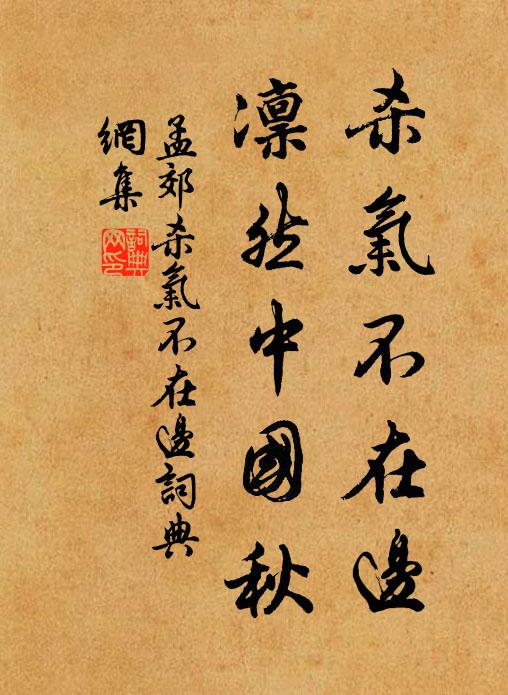 杀氣不在邊
凛然中國秋
孟郊杀氣不在邊詞典
網集
詞典網印